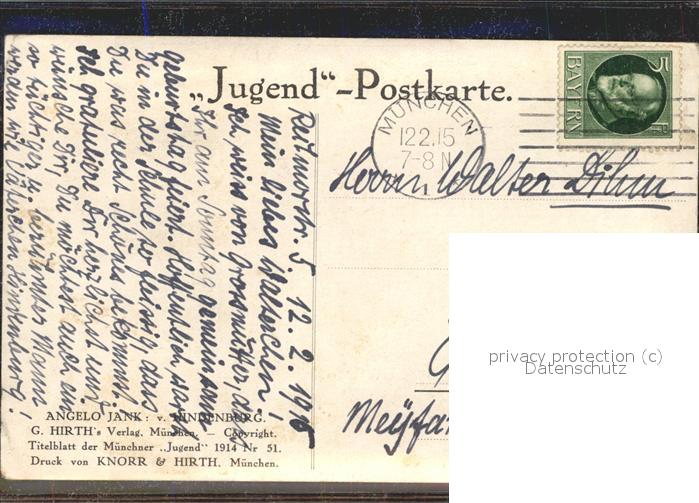 „Jugend“-Postkarte.
BAYERN
5
MÜNCHEN
12.2.15
7-8 N
Herrn Walter Dihm
privacy protection (c)
Datenschutz
Reitmorstr. 5 12. 2. 1915
Mein liebes
Ich weiss von Grossmutter, dass
Ihr am Sonntag gemeinsam
Geburtstag feiert. Hoffentlich warst
Du in der Schule so fleissig, dass
Du was recht Schönes bekommst.
Ich gratuliere Dir herzlichst und
wünsche Dir, Du möchtest auch ein
so tüchtiger u. berühmter Mann
werden wie Hindenburg!
ANGELO JANK: v. HINDENBURG.
G. HIRTH's Verlag, München. — Copyright.
Titelblatt der Münchner „Jugend“ 1914 Nr 51.
Druck von KNORR & HIRTH, München.